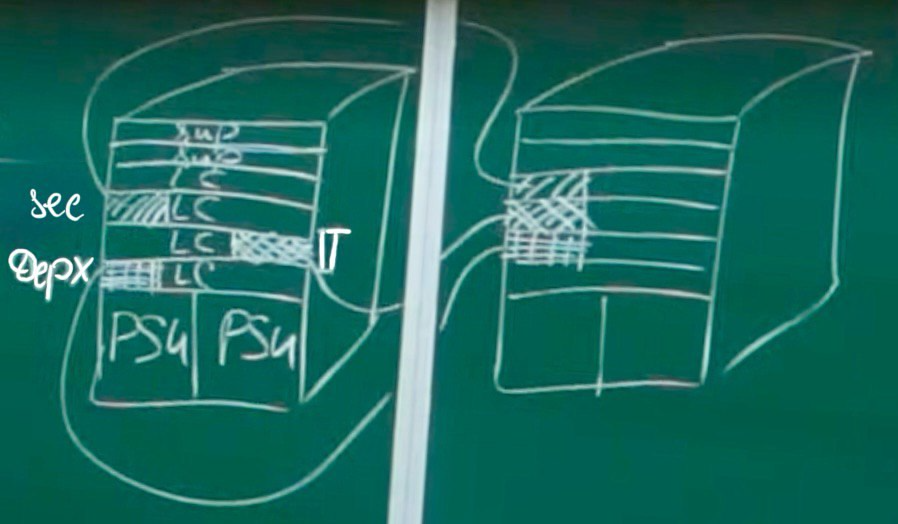 Sup
Sup
LC
sec LC
LC IT
Держ LC
PSU PSU